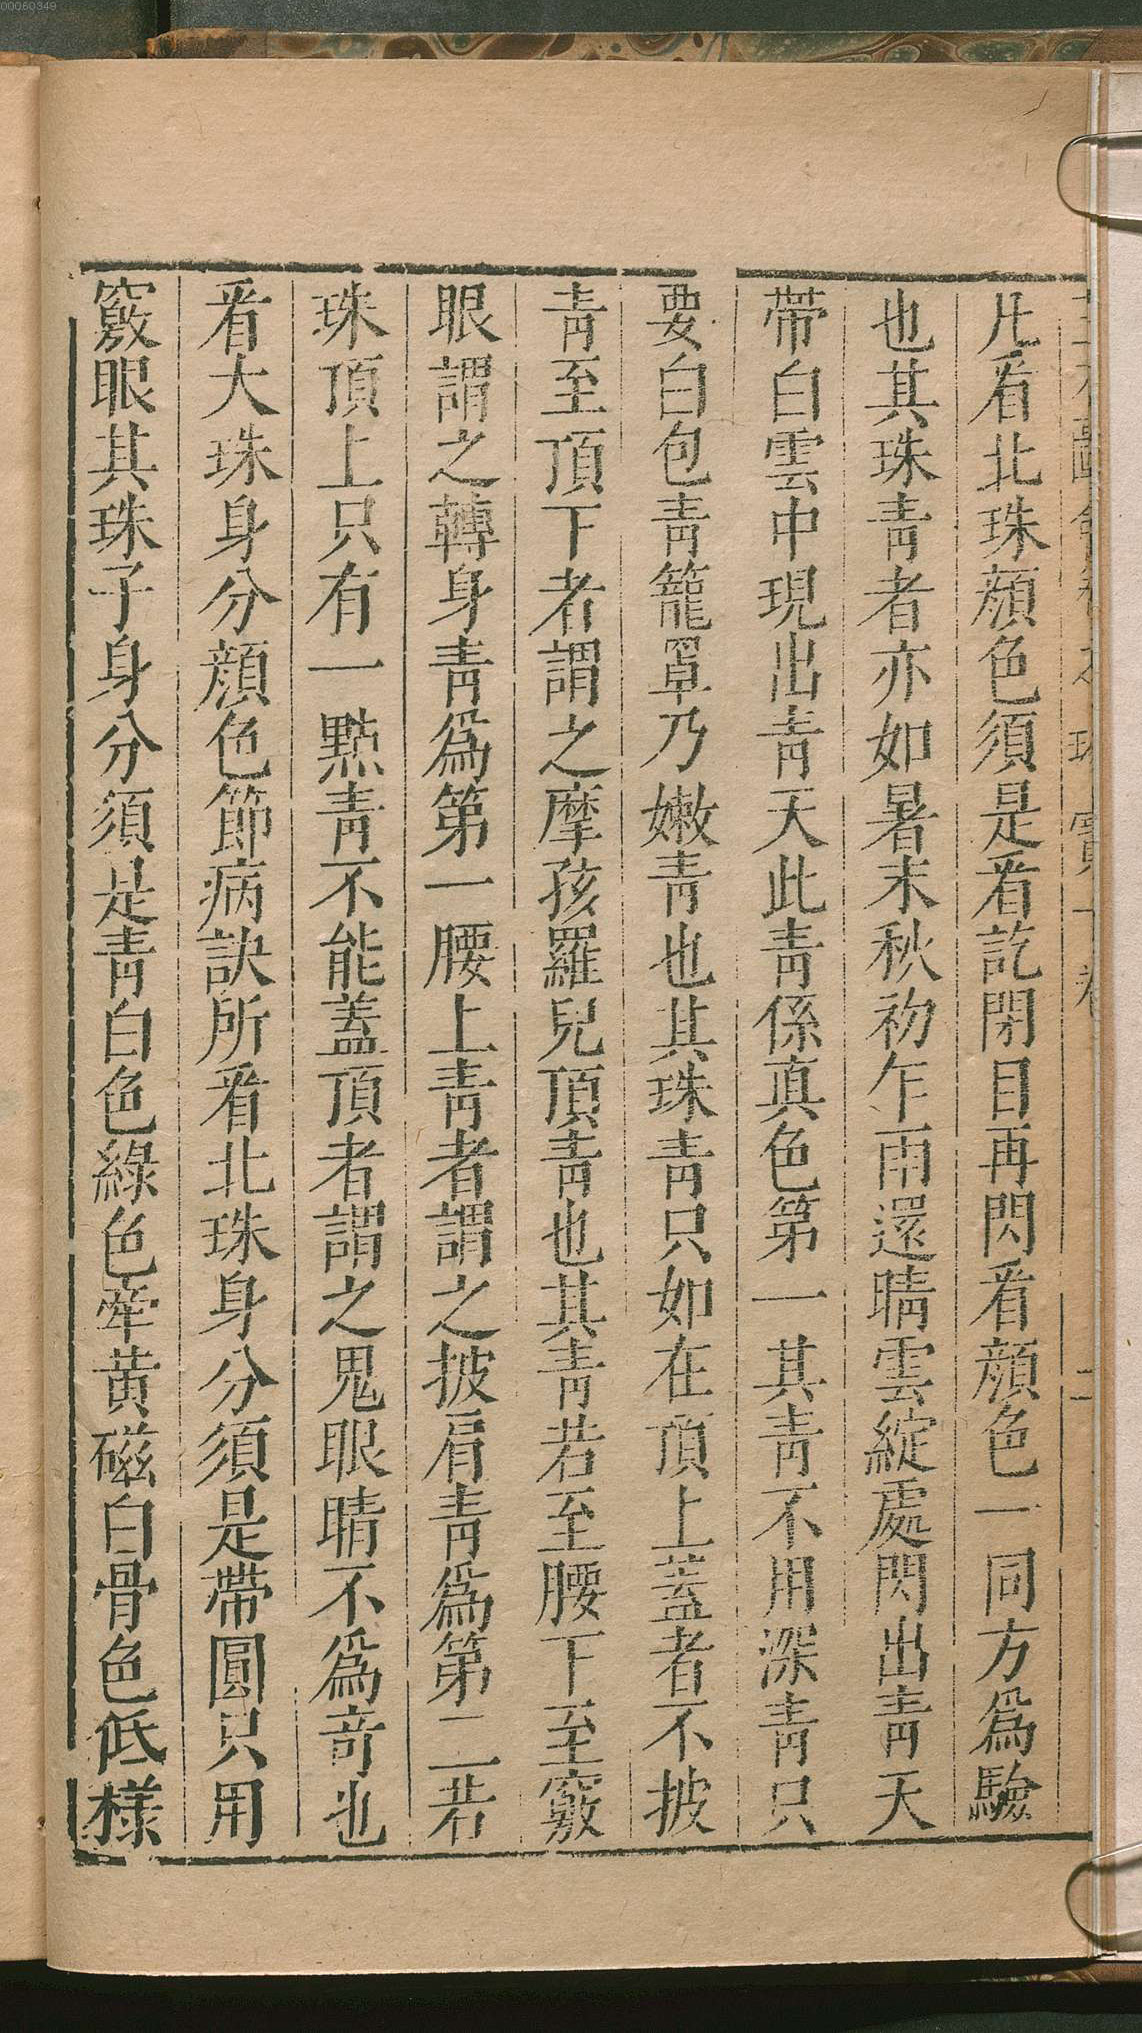 凡看北珠顔色須是看訖閉目再閃看顔色一同方爲驗
也其珠靑者亦如暑末秋初乍雨還晴雲綻處閃出靑天
帶白雲中現出靑天此靑係真色第一其靑不用深靑只
要白包靑籠罩乃嫩靑也其珠靑只如在頂上蓋者不披
靑至頂下者謂之摩孩羅兒頂靑也其靑若至腰下至竅
眼謂之轉身靑爲第一腰上靑者謂之披肩靑爲第二若
珠頂上只有一點靑不能蓋頂者謂之鬼眼睛不爲奇也
看大珠身分顔色節病訣所看北珠身分須是帶圓只用
竅眼其珠子身分須是靑白色綠色牽黄磁白骨色低様
00060349